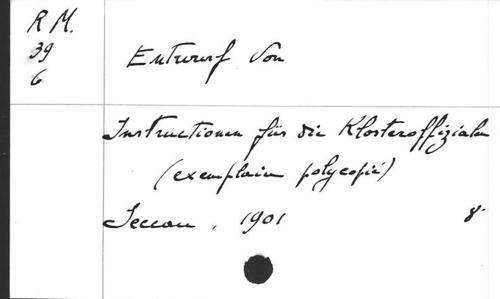 R M.
39
6
Entwurf von
Instructionen für die Klosteroffizialen
(exemplaire polycopié)
Seccau, 1901 8°